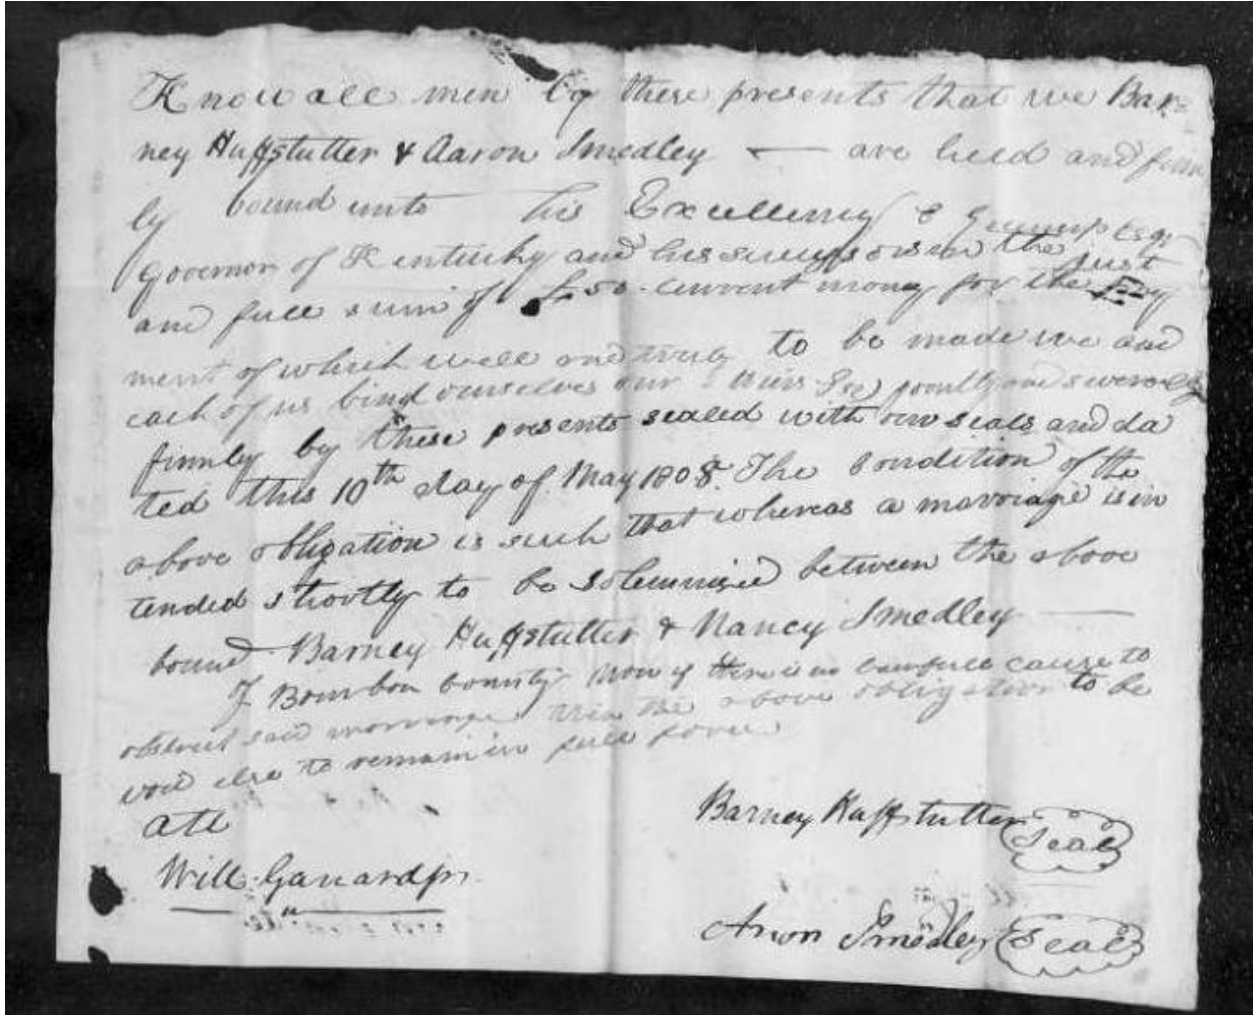 Know all men by these presents that we Bar
ney Huffstutter & Aaron Smedley — are held and firm
ly bound unto his Excellency C Greenup Esqr
Governor of Kentucky and his successors in the just
and full sum of £50 current money for the pay
ment of which well and truly to be made we and
each of us bind ourselves our heirs &c jointly and severally
firmly by these presents sealed with our seals and da
ted this 10th day of May 1808. The condition of the
above obligation is such that whereas a marriage is in
tended shortly to be solemnized between the above
bound Barney Huffstutter & Nancy Smedley —
of Bourbon County Now if there is no lawfull cause to
obstruct said marriage then the above obligation to be
void else to remain in full force
att
Will Garrard jr.
Barney Huffstutter Seal
Aron Smedley Seal